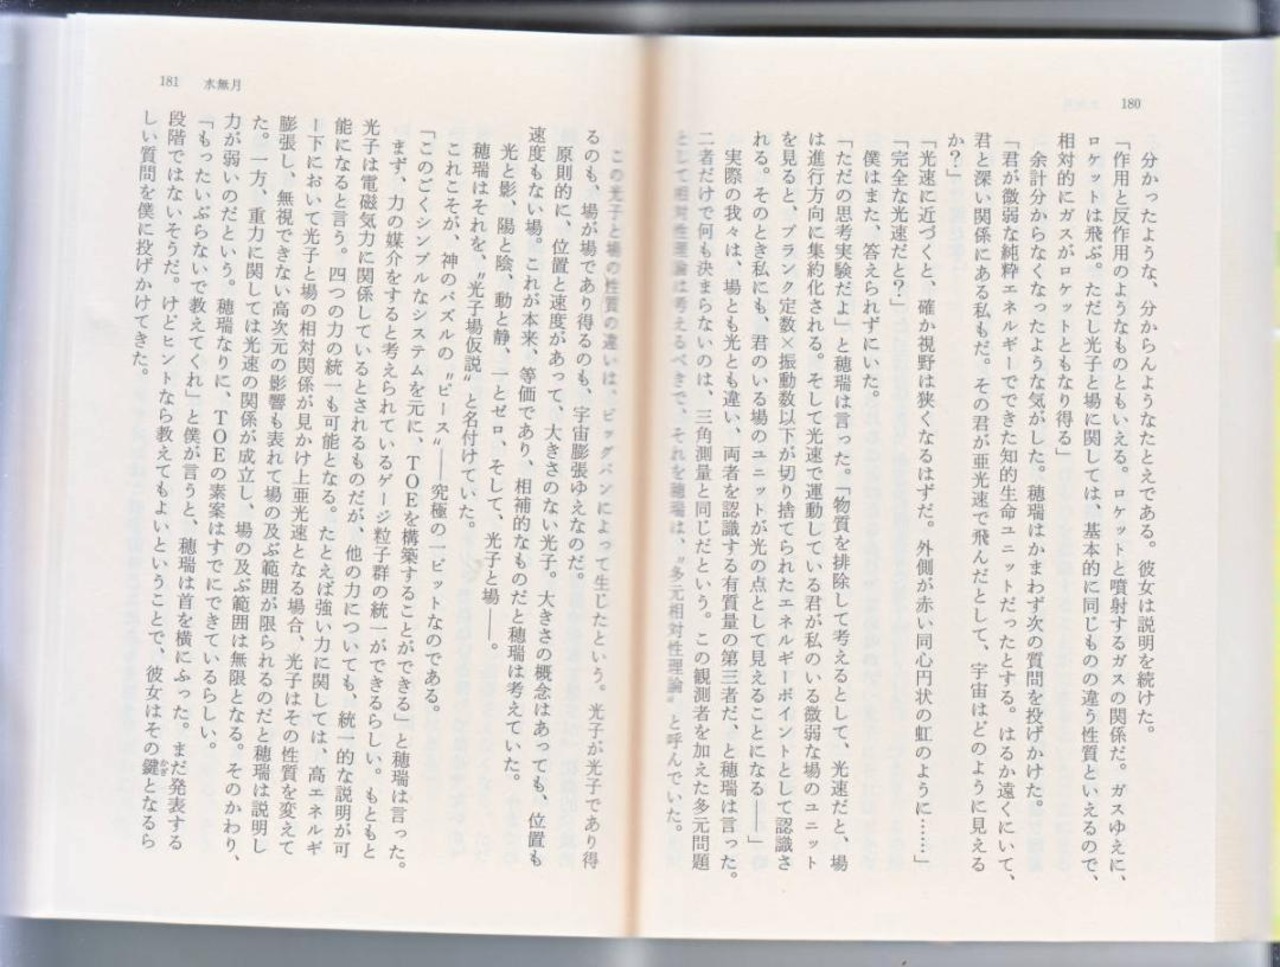 180
分かったような、分からんようなたとえである。彼女は説明を続けた。
「作用と反作用のようなものともいえる。ロケットと噴射するガスの関係だ。ガスゆえに、
ロケットは飛ぶ。ただし光子と場に関しては、基本的に同じものの違う性質といえるので、
相対的にガスがロケットともなり得る」
余計分からなくなったような気がした。穂瑞はかまわず次の質問を投げかけた。
「君が微弱な純粋エネルギーでできた知的生命ユニットだったとする。はるか遠くにいて、
君と深い関係にある私もだ。その君が亜光速で飛んだとして、宇宙はどのように見える
か？」
「光速に近づくと、確か視野は狭くなるはずだ。外側が赤い同心円状の虹のように……」
「完全な光速だと？」
僕はまた、答えられずにいた。
「ただの思考実験だよ」と穂瑞は言った。「物質を排除して考えるとして、光速だと、場
は進行方向に集約化される。そして光速で運動している君が私のいる微弱な場のユニット
を見ると、プランク定数×振動数以下が切り捨てられたエネルギーポイントとして認識さ
れる。そのとき私にも、君のいる場のユニットが光の点として見えることになる――」
実際の我々は、場とも光とも違い、両者を認識する有質量の第三者だ、と穂瑞は言った。
二者だけで何も決まらないのは、三角測量と同じだという。この観測者を加えた多元問題
として相対性理論は考えるべきで、それを穂瑞は、〝多元相対性理論〟と呼んでいた。
181 水無月
この光子と場の性質の違いは、ビッグバンによって生じたという。光子が光子であり得
るのも、場が場であり得るのも、宇宙膨張ゆえなのだ。
原則的に、位置と速度があって、大きさのない光子。大きさの概念はあっても、位置も
速度もない場。これが本来、等価であり、相補的なものだと穂瑞は考えていた。
光と影、陽と陰、動と静、一とゼロ、そして、光子と場――。
穂瑞はそれを、〝光子場仮説〟と名付けていた。
これこそが、神のパズルの〝ピース〟――究極の一ピットなのである。
「このごくシンプルなシステムを元に、TOEを構築することができる」と穂瑞は言った。
まず、力の媒介をすると考えられているゲージ粒子群の統一ができるらしい。もともと
光子は電磁気力に関係しているとされるものだが、他の力についても、統一的な説明が可
能になると言う。四つの力の統一も可能となる。たとえば強い力に関しては、高エネルギ
ー下において光子と場の相対関係が見かけ上亜光速となる場合、光子はその性質を変えて
膨張し、無視できない高次元の影響も表れて場の及ぶ範囲が限られるのだと穂瑞は説明し
た。一方、重力に関しては光速の関係が成立し、場の及ぶ範囲は無限となる。そのかわり、
力が弱いのだという。穂瑞なりに、TOEの素案はすでにできているらしい。
「もったいぶらないで教えてくれ」と僕が言うと、穂瑞は首を横にふった。まだ発表する
段階ではないそうだ。けどヒントなら教えてもよいということで、彼女はその鍵かぎとなるら
しい質問を僕に投げかけてきた。